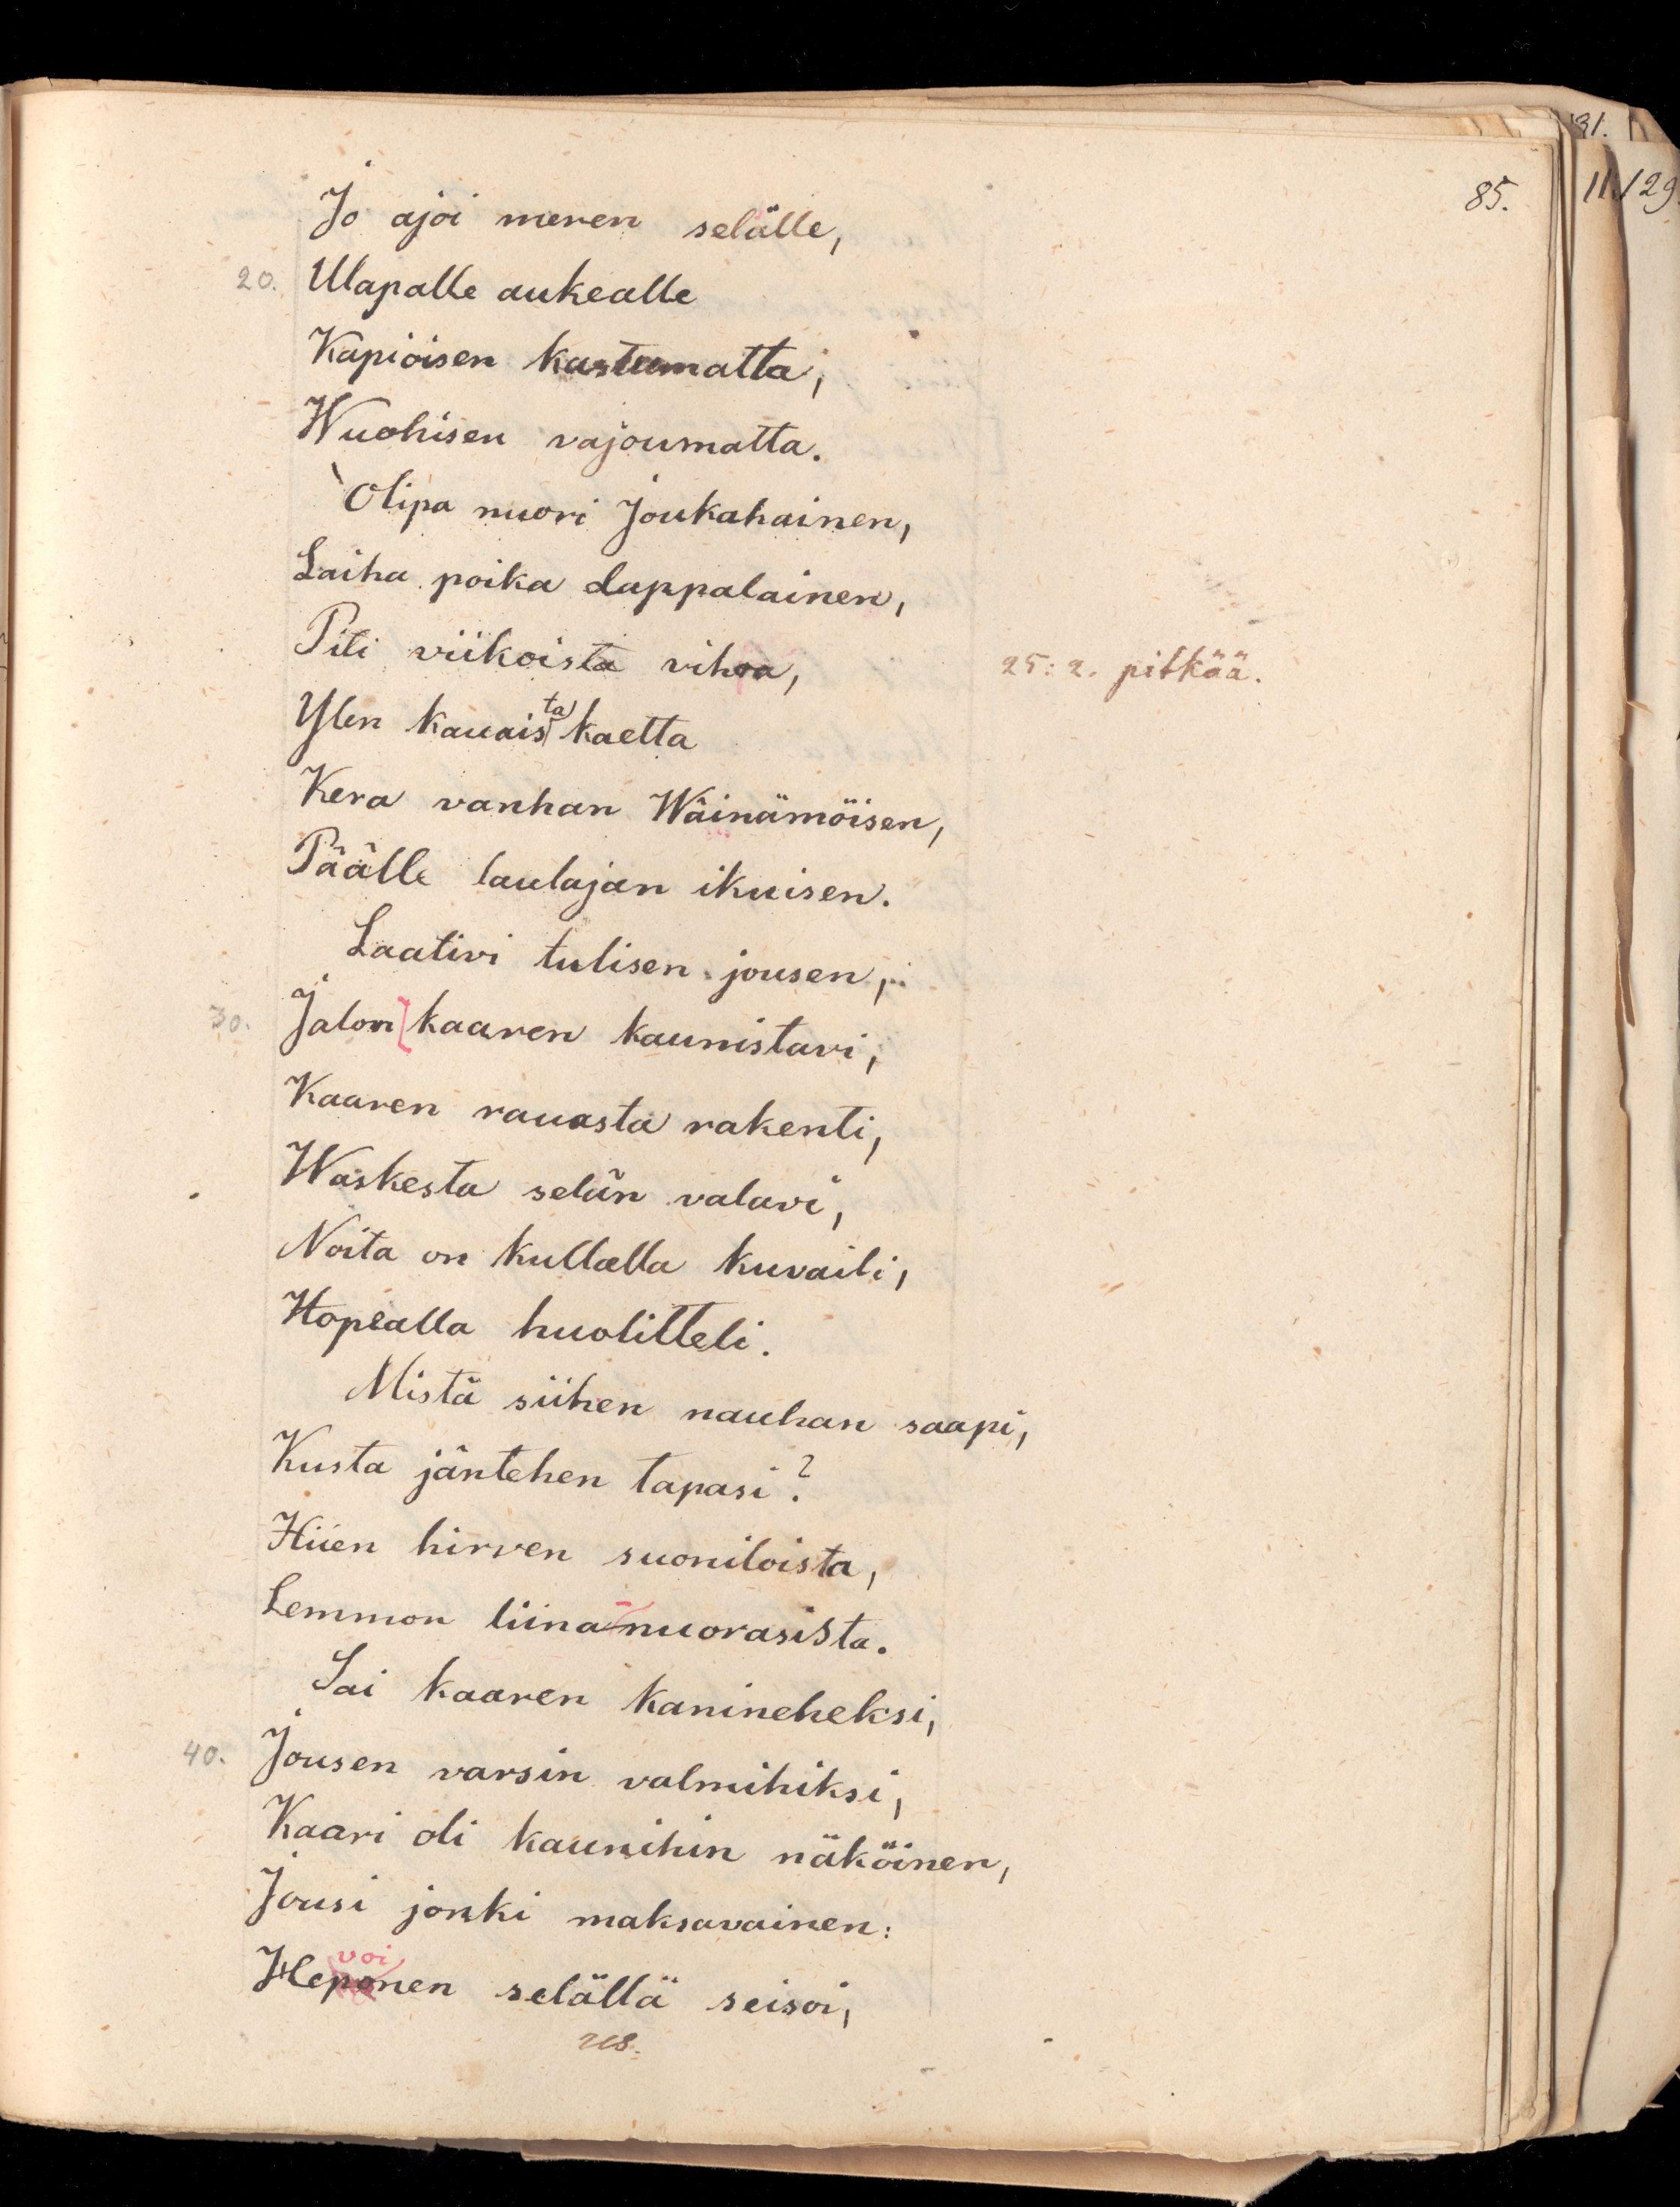 31.
85.
11/29
Jo ajoi meren selälle,
20. Ulapalle aukealle
Kapioisen kastumatta,
Wuohisen vajoumatta.
Olipa nuori Joukahainen,
Laiha poika Lappalainen,
Piti viikoista vihoa, 25: 2. pitkää.
Ylen kauaista kaetta
Kera vanhan Wäinämöisen,
Päälle laulajan ikuisen.
Laativi tulisen jousen,
30. Jalon kaaren kaunistavi,
Kaaren rauasta rakenti,
Waskesta selän valavi,
Noita on kullalla kuvaili,
Hopealla huolitteli.
Mistä siihen nauhan saapi,
Kusta jäntehen tapasi?
Hiien hirven suoniloista,
Lemmon liina-nuorasista.
Sai kaaren kanineheksi,
40. Jousen varsin valmihiksi,
Kaari oli kaunihin näköinen,
Jousi jonki maksavainen:
voi
Heponen selällä seisoi,